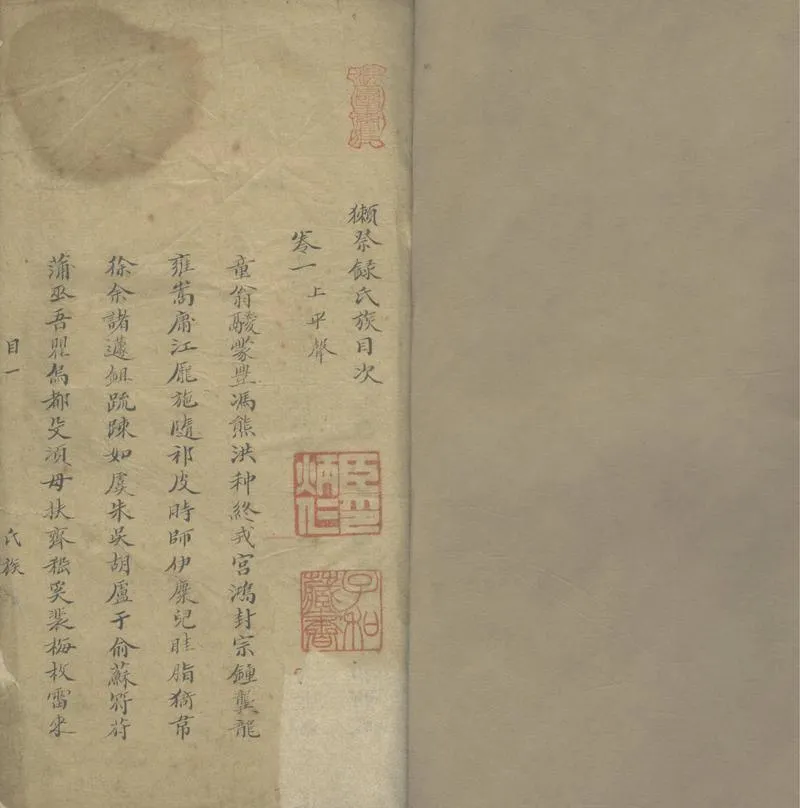 獺祭録氏族目次
卷一 上平聲
童翁鬷蒙豊馮熊洪种終戎宮鴻封宗鍾龔龍
雍嵩庸江龐施隨祁皮時師伊麋兒眭脂猗韋
徐余諸蘧俎疏踈如虞朱吳胡盧于俞蘇符苻
蒲巫吾瞿烏都殳須毋扶齊嵇奚裴梅枚雷來
目一
氏族
臣印
炳仁
子和
藏書